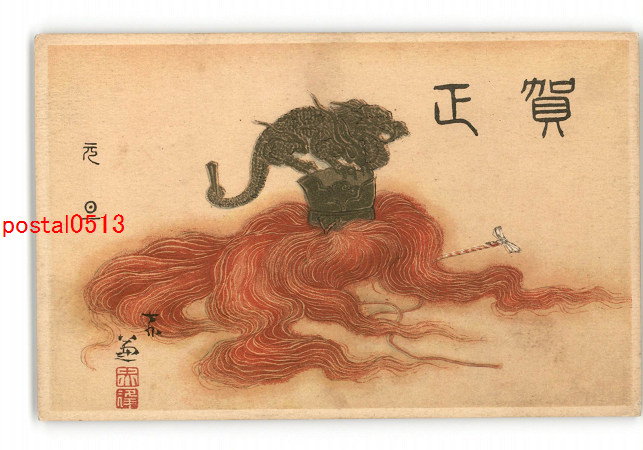 賀正
元旦
postal0513